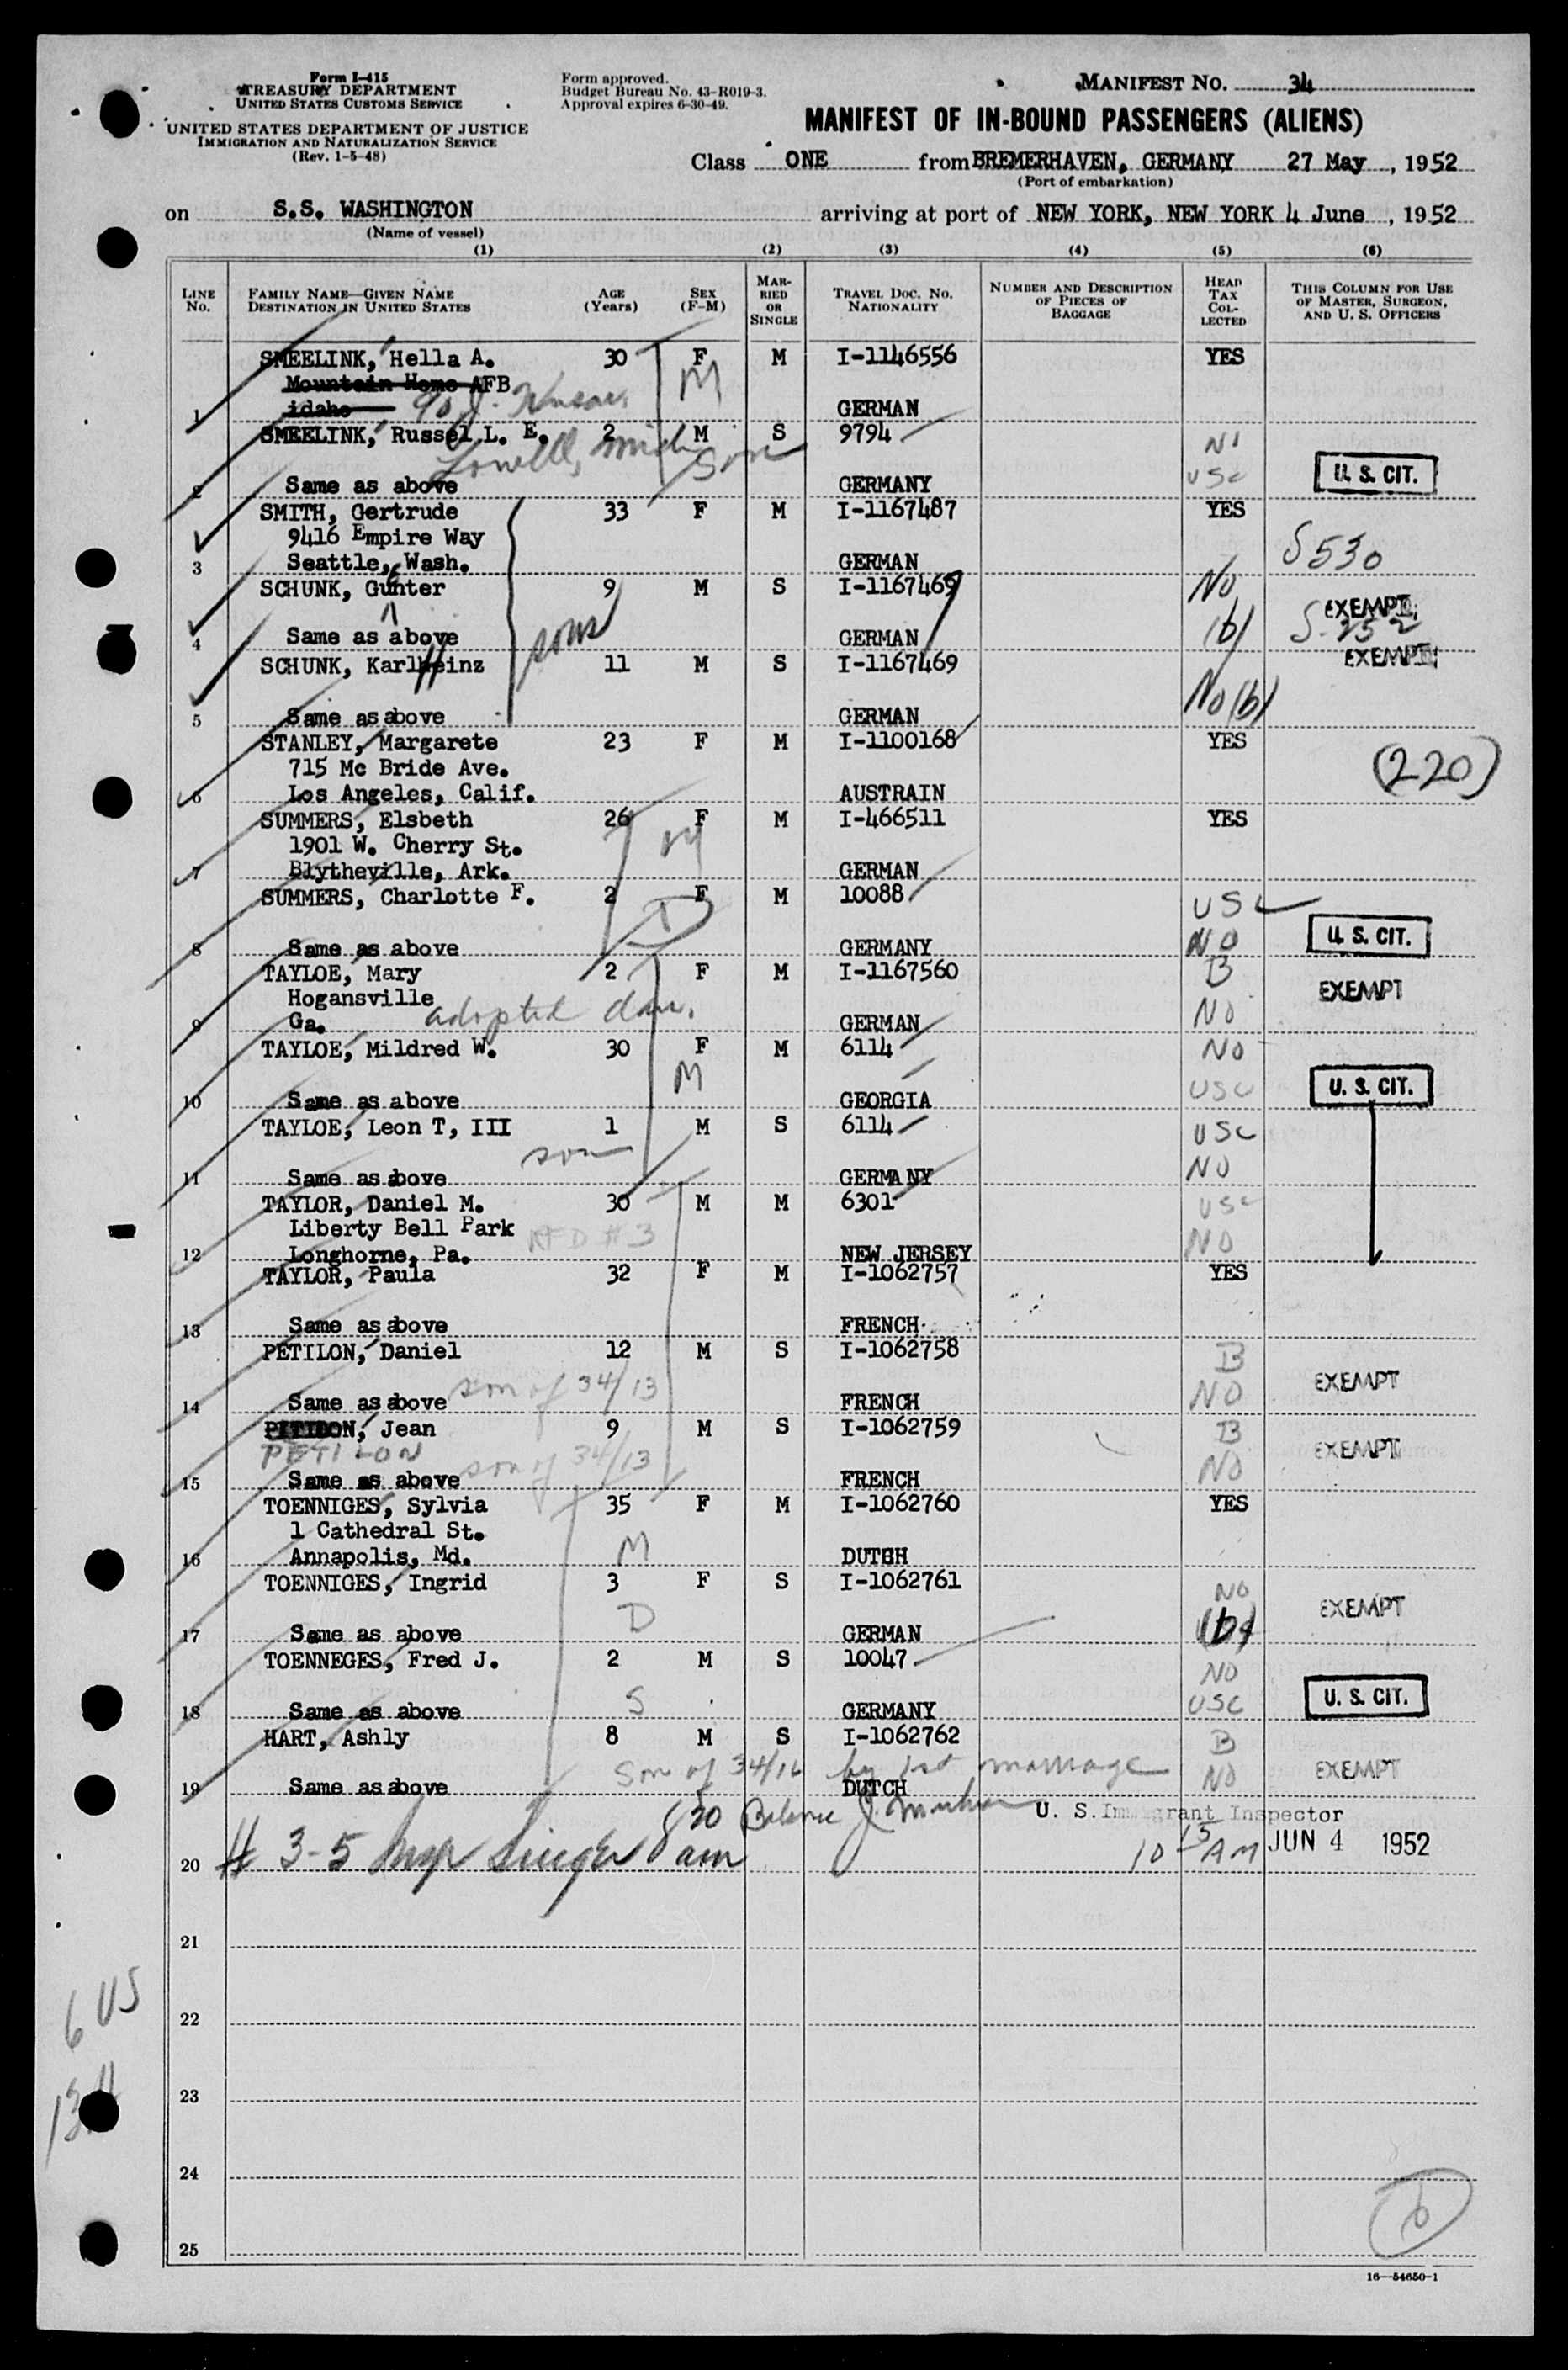 Form I-415
TREASURY DEPARTMENT
UNITED STATES CUSTOMS SERVICE
UNITED STATES DEPARTMENT OF JUSTICE
IMMIGRATION AND NATURALIZATION SERVICE
(Rev. 1-5-48)
Form approved.
Budget Bureau No. 43-R019-3.
Approval expires 6-30-49.
MANIFEST NO. 34
MANIFEST OF IN-BOUND PASSENGERS (ALIENS)
Class ONE from BREMERHAVEN, GERMANY 27 May, 1952
(Port of embarkation)
on S.S. WASHINGTON arriving at port of NEW YORK, NEW YORK 4 June, 1952
(Name of vessel)
(1) (2) (3) (4) (5) (6)
LINE NO. FAMILY NAME—GIVEN NAME DESTINATION IN UNITED STATES AGE (Years) SEX (F-M) MARRIED OR SINGLE TRAVEL DOC. NO. NATIONALITY NUMBER AND DESCRIPTION OF PIECES OF BAGGAGE HEAD TAX COLLECTED THIS COLUMN FOR USE OF MASTER, SURGEON, AND U. S. OFFICERS
SMEELINK, Hella A. 30 F M I-1146556 YES
Mountain Home AFB M
1 idaho GERMAN
SMEELINK, Russel L. E. 2 M S 9794 NO
Lowell, Mich Son
2 Same as above GERMANY USC U. S. CIT.
SMITH, Gertrude 33 F M I-1167487 YES
9416 Empire Way
3 Seattle, Wash. GERMAN S530
SCHUNK, Gunter 9 M S I-1167469 No EXEMPT
4 Same as above sons GERMAN (b) S-252
SCHUNK, Karlheinz 11 M S I-1167469 EXEMPT
H No (b)
5 Same as above GERMAN
STANLEY, Margarete 23 F M I-1100168 YES
715 Mc Bride Ave. (220)
6 Los Angeles, Calif. AUSTRAIN
SUMMERS, Elsbeth 26 F M I-466511 YES
1901 W. Cherry St. M
7 Blytheville, Ark. GERMAN
SUMMERS, Charlotte F. 2 F M 10088 USC
D
8 Same as above GERMANY NO U. S. CIT.
TAYLOE, Mary 2 F M I-1167560 B EXEMPT
Hogansville
9 Ga. adopted dau. GERMAN NO
TAYLOE, Mildred W. 30 F M 6114 NO
M
10 Same as above GEORGIA USC U. S. CIT.
TAYLOE, Leon T, III 1 M S 6114 USC
son
11 Same as above GERMANY NO
TAYLOR, Daniel M. 30 M M 6301 USC
Liberty Bell Park RFD #3
12 Longhorne, Pa. NEW JERSEY NO
TAYLOR, Paula 32 F M I-1062757 YES
13 Same as above FRENCH
PETILON, Daniel 12 M S I-1062758 B
son of 34/13 EXEMPT
14 Same as above FRENCH NO
PETILON, Jean 9 M S I-1062759 B
PETILON son of 34/13 EXEMPT
15 Same as above FRENCH NO
TOENNIGES, Sylvia 35 F M I-1062760 YES
1 Cathedral St.
16 Annapolis, Md. M DUTBH
TOENNIGES, Ingrid 3 F S I-1062761 NO
D EXEMPT
17 Same as above GERMAN (b)
TOENNEGES, Fred J. 2 M S 10047 NO
18 Same as above S GERMANY USC U. S. CIT.
HART, Ashly 8 M S I-1062762 B
son of 34/16 by 1st marriage EXEMPT
19 Same as above DUTCH NO
# 3-5 Insp Singer 8 20 am Balance J. U. S. Immigrant Inspector
20 10 15 AM JUN 4 1952
21
22
23
24
25
6 US
13
6
16—54650-1